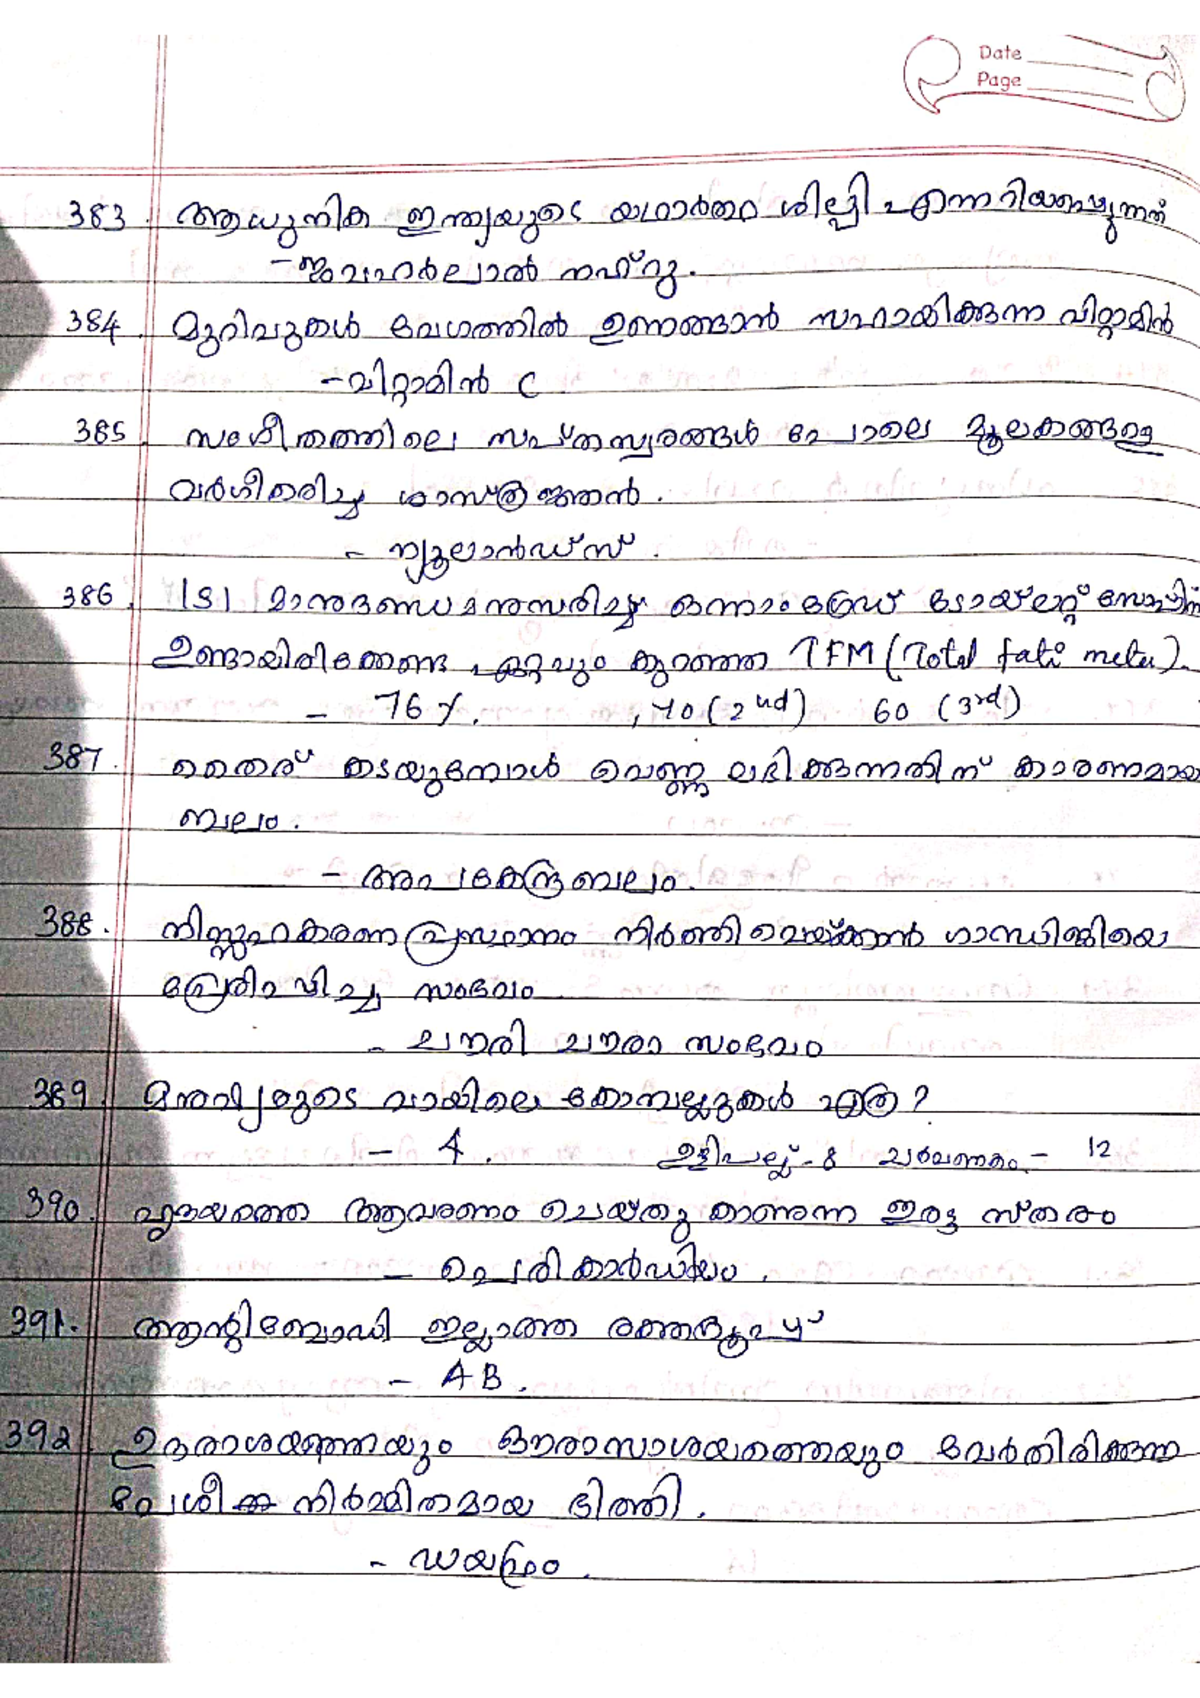 Date
Page
383. ആധുനിക ഇന്ത്യയുടെ യഥാർത്ഥ ശില്പി എന്നറിയപ്പെടുന്നത്
- ജവഹർലാൽ നഹ്റു.
384. മുറിവുകൾ വേഗത്തിൽ ഉണങ്ങാൻ സഹായിക്കുന്ന വിറ്റാമിൻ
- വിറ്റാമിൻ C
385. സംഗീതത്തിലെ സപ്തസ്വരങ്ങൾ പോലെ മൂലകങ്ങളെ
വർഗീകരിച്ച ശാസ്ത്രജ്ഞൻ.
- ന്യൂലാൻഡ്സ്.
386. ISI മാനദണ്ഡമനുസരിച്ച് ഒന്നാംഗ്രേഡ് ടോയ്ലറ്റ് സോപ്പിന്
ഉണ്ടായിരിക്കേണ്ട ഏറ്റവും കുറഞ്ഞ TFM (Total fati meter).
- 76 %. , 70 (2nd) 60 (3rd)
387. തൈര് കടയുമ്പോൾ വെണ്ണ ലഭിക്കുന്നതിന് കാരണമായ
ബലം.
- അപകേന്ദ്രബലം.
388. നിസ്സഹകരണ പ്രസ്ഥാനം നിർത്തിവെയ്ക്കാൻ ഗാന്ധിജിയെ
പ്രേരിപ്പിച്ച സംഭവം
- ചൗരി ചൗരാ സംഭവം
389. മനുഷ്യരുടെ വായിലെ കോമ്പല്ലുകൾ എത്ര?
- 4. ഉളിപല്ല് - 8 ചർവണകം - 12
390. ഹൃദയത്തെ ആവരണം ചെയ്തു കാണുന്ന ഇരട്ട സ്തരം
- പെരികാർഡിയം.
391. ആന്റിബോഡി ഇല്ലാത്ത രക്തഗ്രൂപ്പ്
- AB.
392. ഉദരാശയത്തെയും ഔരാസാശയത്തെയും വേർതിരിക്കുന്ന
പേശീ നിർമ്മിതമായ ഭിത്തി.
- ഡയഫ്രം.